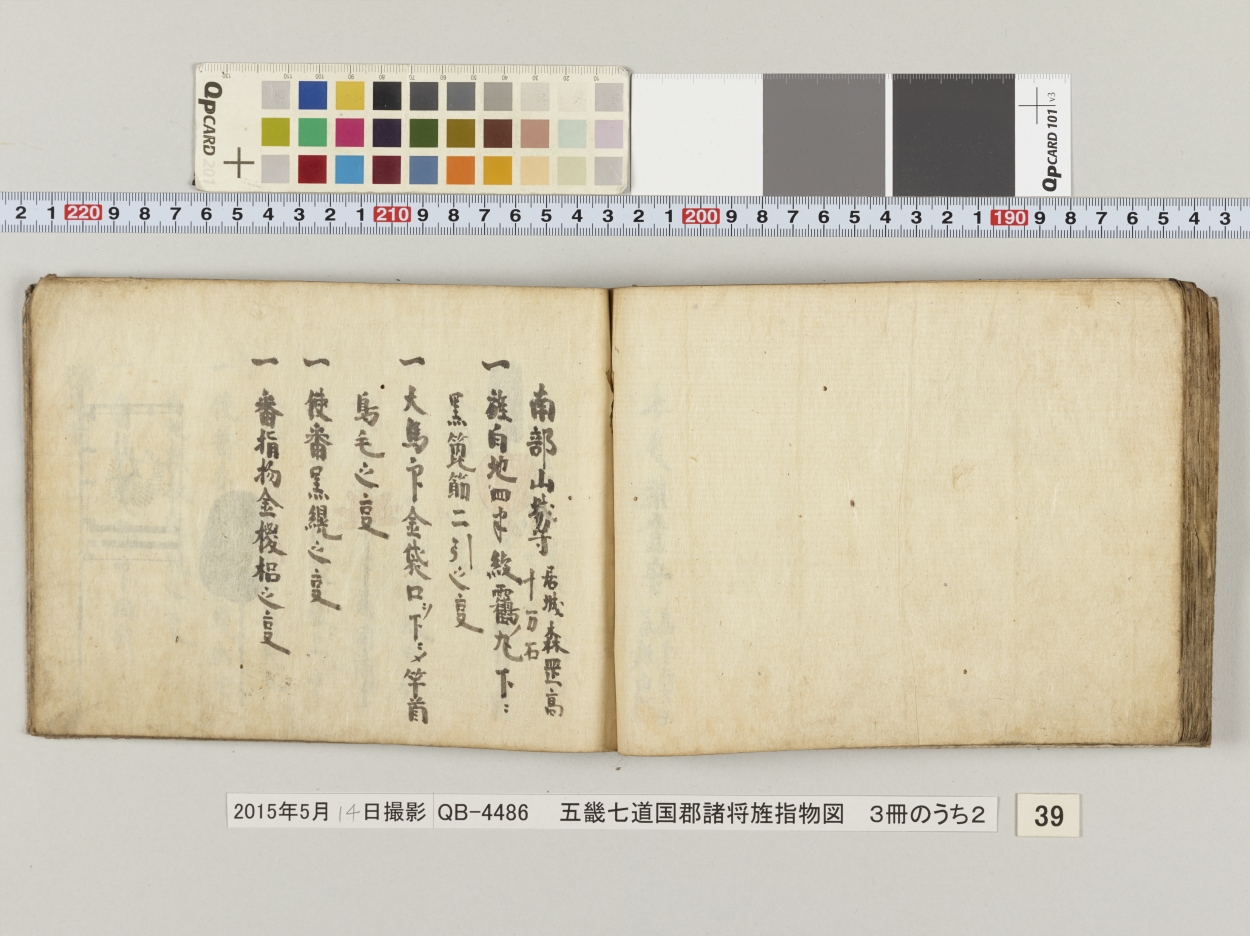 南部山城守 居城森罡高
十万石
一 旌白地四半紋靏ノ丸下ニ
黒箆筋二引之亘
一 大馬印金袋口ヲ下ニシメ竿首
鳥毛之亘
一 使番黒幌之亘
一 番指物金椶梠之亘
2015年5月14日撮影 QB-4486 五畿七道国郡諸将旌指物図 3冊のうち2
39
QPCARD 201
QPCARD 101 v3
2 1 220 9 8 7 6 5 4 3 2 1 210 9 8 7 6 5 4 3 2 1 200 9 8 7 6 5 4 3 2 1 190 9 8 7 6 5 4 3